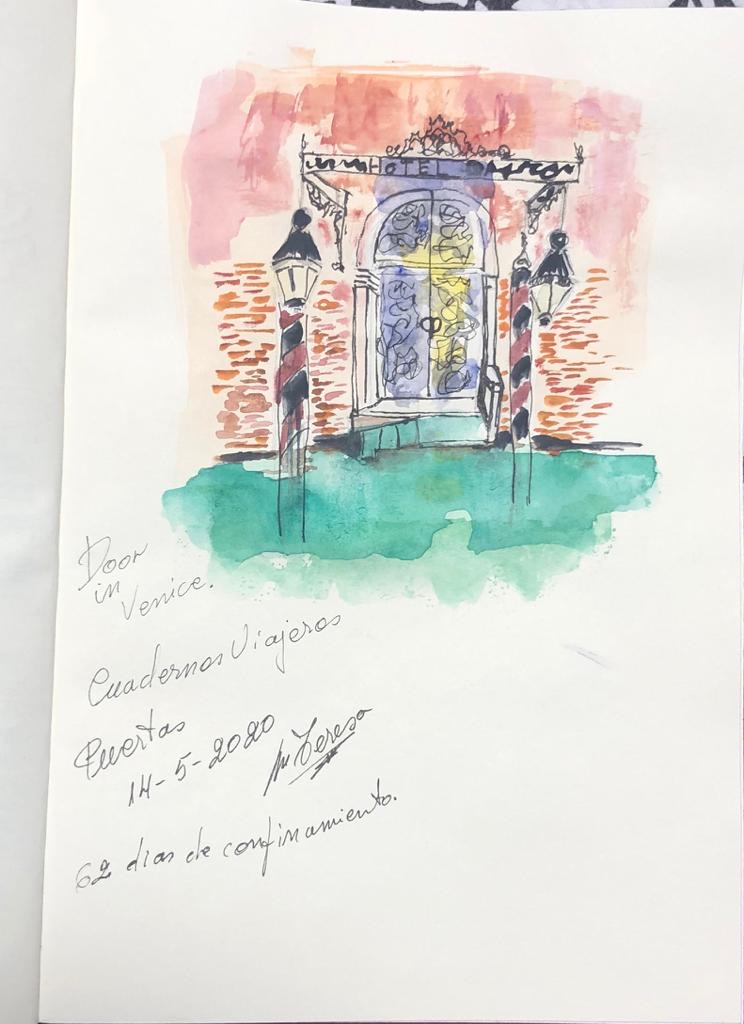 HOTEL
Door
in
Venice.
Cuadernos Viajeros
Puertas
14-5-2020
Mª Teresa
62 dias de confinamiento.